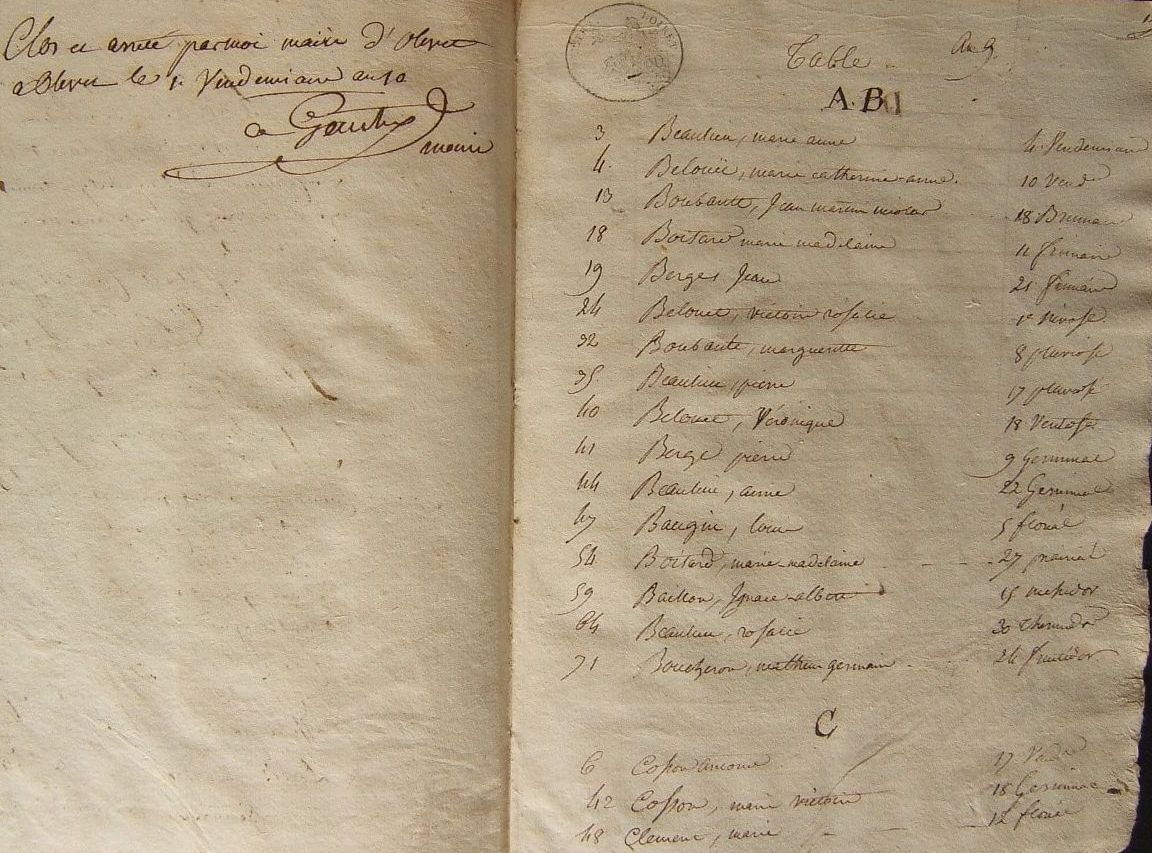 Clos et arreté par moi maire d'Olivet
a Olivet le 1. Vendemiaire an 10
maire
Table
An 9.
A. B
3 Beaulieu, marie anne 4. Vendemiaire
4. Belouet, marie catherine anne. 10 Vend
13 Boubault, Jean martin nicolas 18 Brumaire
18 Boitard marie madelaine 11 frimaire
19 Berges Jean 21 frimaire
24 Belouet, victoire rosalie 1er nivose
32 Boubault, margueritte 8 pluviose
35 Beaulieu, pierre 17 pluviose
40 Belouet, Véronique 18 Ventose
41 Berge pierre 9 Germinal
44 Beaulieu, anne 22 Germinal
47 Baugin, louis 5 floréal
54 Boitard, marie-madelaine 27 prairial
59 Baillon, Ignace albert 15 messidor
64 Beaulieu, rosalie 30 thermidor
71 Boucheron, mathieu germain 24 fructidor
C
6 Cosson antoine 17 Vendre
42 Cosson, marie victoire 18 Germinal
48 Clement, marie 12 floréal